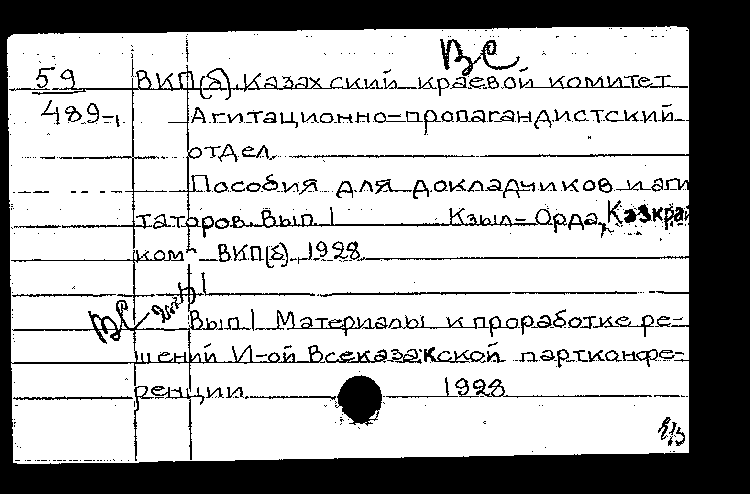 ВС
59 ВКП(б). Казахский краевой комитет
489-1 Агитационно-пропагандистский
отдел.
Пособия для докладчиков и аги
таторов. Вып. 1 Кзыл-Орда, Казкрай
ком ВКП(б), 1928
1
ВС
Вып. 1 Материалы к проработке ре-
шений VI-ой Всеказакской партконфе-
ренции 1928